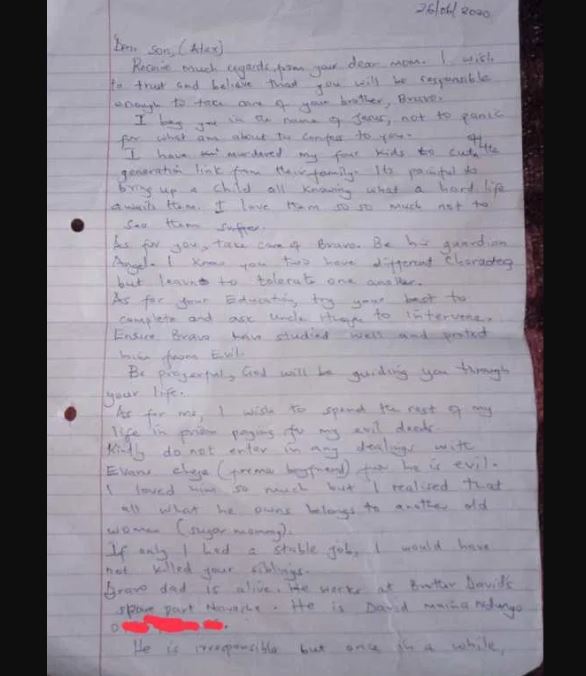 26/06/2020
Dear Son, (Alex)
Receive much regards from your dear mom. I wish
to trust and believe that you will be responsible
enough to take care of your brother, Bravo.
I beg you in the name of Jesus, not to panic
for what am about to confess to you.
I have murdered my four kids to cut off the
generation link from their family. Its painful to
bring up a child all knowing what a hard life
awaits them. I love them so so much not to
see them suffer.
As for you, take care of Bravo. Be his guardian
Angel. I know you two have different character
but learn to tolerate one another.
As for your Education, try your best to
complete and ask uncle to intervene.
Ensure Bravo have studied well and protect
him from Evil.
Be prayerful, God will be guiding you through
your life.
As for me, I wish to spend the rest of my
life in prison paying for my evil deeds.
Kindly do not enter in any dealings with
Evans (former boyfriend) for he is evil.
I loved him so much but I realised that
all what he owns belongs to another old
women (sugar mommy).
If only I had a stable job, I would have
not killed your siblings.
Bravo dad is alive. He works at David's
spare part . He is David Maina Ndungo
He is irresponsible but once in a while,